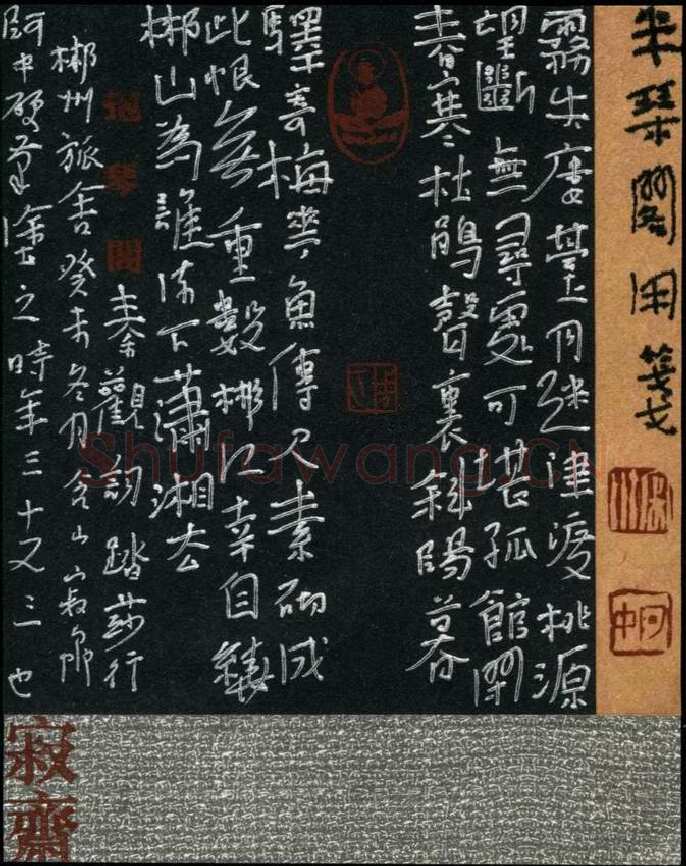 琴閣用箋
霧失廔臺月迷津渡桃源
望斷無尋處可堪孤館閉
春寒杜鵑聲裏斜陽暮
驛寄梅華魚傳尺素砌成
此恨無重數郴江幸自繞
郴山為誰流下瀟湘去
秦觀詞踏莎行
郴州旅舍癸未冬月山寂
阿中硬筆塗之時年三十又三也
琴閣
寂齋
Shufawang.CN